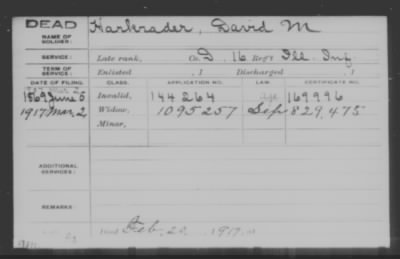 DEAD
NAME OF SOLDIER: Harkrader, David M
SERVICE: Late rank, Co. D, 16 Reg't Ill. Inf.
TERM OF SERVICE: Enlisted , 1 Discharged , 1
DATE OF FILING. CLASS. APPLICATION NO. LAW. CERTIFICATE NO.
1869 June 5 Invalid, 144264 169996
1917 Mar. 2 Widow, 1095257 829,475
Minor,
ADDITIONAL SERVICES:
REMARKS:
Died Feb. 20, 1917